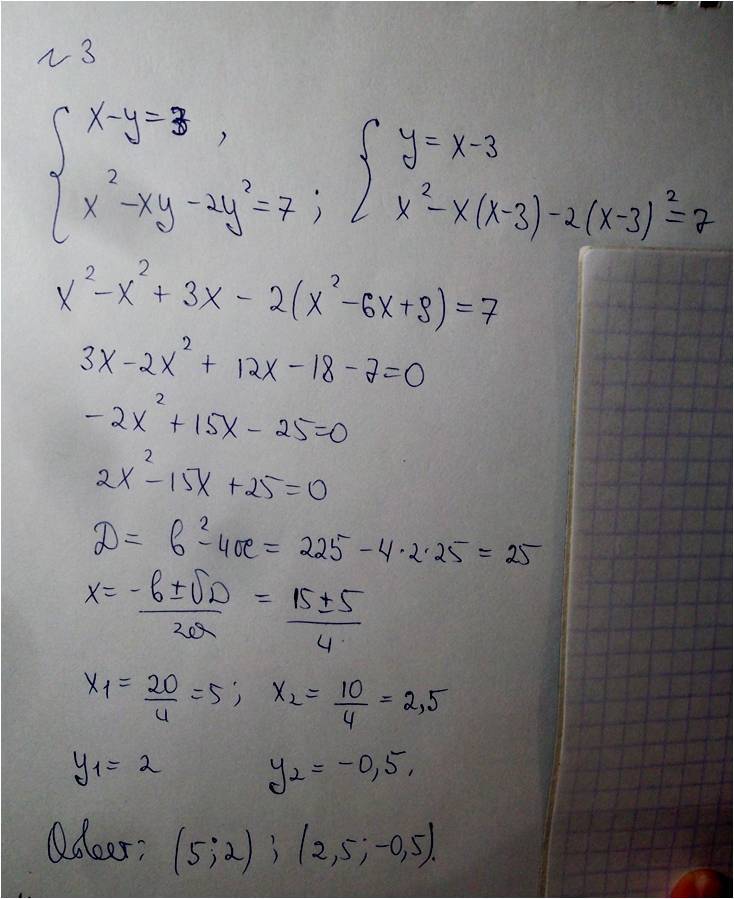 № 3
{ x-y=3, { y=x-3
x²-xy-2y²=7; x²-x(x-3)-2(x-3)²=7
x²-x²+3x-2(x²-6x+9)=7
3x-2x²+12x-18-7=0
-2x²+15x-25=0
2x²-15x+25=0
D= b²-4ac= 225-4·2·25=25
x= (-b±√D)/2a = (15±5)/4
x₁= 20/4 =5; x₂= 10/4 = 2,5
y₁= 2 y₂= -0,5.
Ответ: (5;2); (2,5;-0,5).